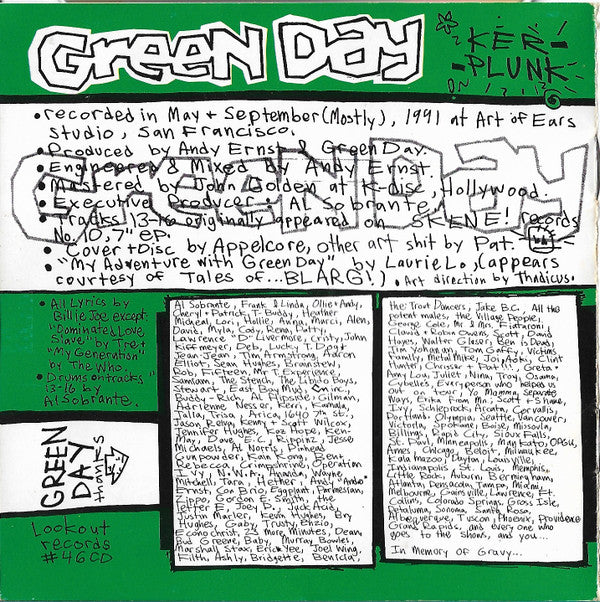 GREEN DAY
KER-
PLUNK
• recorded in May + September (Mostly), 1991 at Art of Ears
Studio, San Francisco.
• Produced by Andy Ernst & Green Day.
• Engineered & Mixed By Andy Ernst.
• Mastered by John Golden at K-disc, Hollywood.
• Executive producer: Al Sobrante,
• Tracks 13-16 originally appeared on SKENE! records
No. 10, 7" eP.
• Cover + Disc by Appelcore, other art shit by Pat.
• "My Adventure with Green Day" by Laurie L., (appears
courtesy of Tales of...BLARG!) • Art direction by Thadicus.
GREEN DAY
• All Lyrics by
Billie Joe except:
"Dominated Love
Slave" by Tre +
"My Generation"
by The Who.
• Drums on tracks
13-16 by
Al Sobrante.
GREEN
DAY
THANKS
Lookout
records
#46CD
Al Sobrante, Frank & Linda, Ollie + Andy,
Cheryl + Patrick, T. Buddy, Heather
Micheal, Lori, Hollie, Anna, Marci, Alen,
David, Myla, Cody, Rena, Patty,
Lawrence "D" Livermore, Cristy, John
Kiffmeyer, Deb, Lucky T. Dog +
Jean-Jean, Tim Armstrong, Aaron
Elliot, Sean Hughes, Brainstew,
Rob, Fifteen, Mr. T Experience,
Samsam, The Stench, The Libido Boyz,
Stewart, East Bay Mud, inc.,
Buddy-Rich, Al Flipside, Gilman,
Adrienne Neser, Kerri, Kamala,
Tall Trisa, Arica, 16+10 7th St.
Jason Relny, Kenny + Scott Wilcox,
Jennifer Hughes, Kaz hope, Ken-
May, Dave E.C., Rippinz, Jesse
Michaels, Al Norris, Pinhead
Gunpowder, Cain Kong, Bent,
Rebecca, Crimpshrine, Operation
Ivy, N.W. Ivan, Amanda, Wayne,
Mitchell, Tara, Hether, Andy "Ando"
Ernst, Cos Brio, Eggplant, Parmesian,
Zippo, Gordon E. Smith, the
Jeffer E., Joey B., Jack Acid,
Justin Marler, Kevin Hughes, Bry
Hughes, Gaby, Trusty, Enzio,
Econo christ, 23 more Minutes, Dean,
Bud Greene, Baby, Murray Bowles,
Marshall Stax, Eric Yee, Joel Wing,
Filth, Ashly, Bridgette, Benicia,
the Trout Dancers, Jake B.C. All the
potent males, the Village People,
George Cole, Mr. & Mrs. Fiataroni
Claudia + Robin Owens, Scott, David
Hayes, Walter Glaser, Ben is Dead,
Tim Yohannan, Tom Gaffy, Victims
Family, Metal Mike, Joi, Aoki, Clint
Hunter, Chrissie + Patti, Greta +
Amy Lou, Juliet, Nina, Troy, Osama,
Corbelle's, Everyperson who helped us
out on tour, Yo Momma, Separate
Ways, Erika From Mr., Scott + Shane,
Ivy, Schleprock, Arcata, Corvalis,
Portland, Olympia, Seattle, Vancouver,
Victoria, Spokane, Boise, Missoula,
Billings, Rapid City, Sioux Falls,
St. Paul, Minneapolis, Mankato, OSSU,
Ames, Chicago, Beloit, Milwaukee,
Kalamazoo, Dayton, Louisville,
Indianapolis, St. Louis, Memphis,
Little Rock, Auburn, Berminghham,
Atlanta, Pensacola, Tampa, Miami,
Melbourne, Gainsville, Lawrence, Ft.
Collins, Colorado Springs, Gross Isle,
Petaluma, Sonoma, Santa Rosa,
Alberquerque, Tuscon, Phoenix, Providence
Grand Rapids, and every one who
goes to the shows, and you...
In Memory of Gravy...